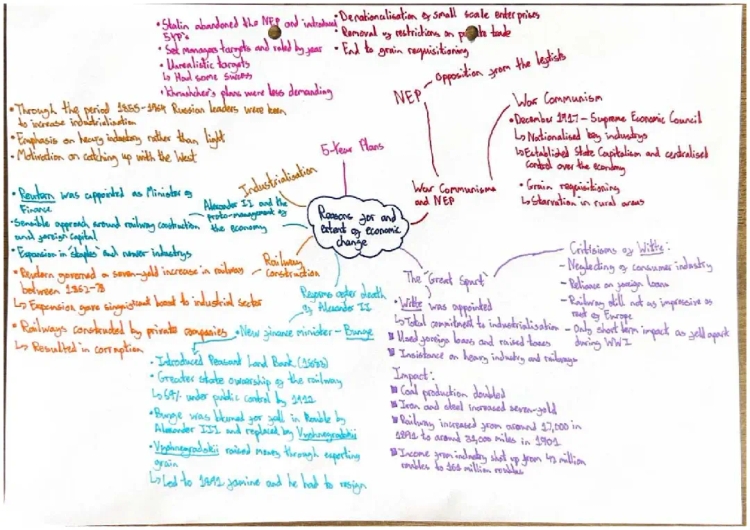 • Stalin abandoned the NEP and introduced
5YP's
• Set manages targets and ruled by year
• Unrealistic targets
↳ Had some success
• Khrushchev's plans were less demanding
• Denationalisation of small scale enterprises
• Removal of restrictions on private trade
• End to grain requisitioning
NEP
opposition from the leftists
War Communism
• December 1917 - Supreme Economic Council
↳ Nationalised key industrys
↳ Established State Capitalism and centralised
control over the economy
• Grain requisitioning
↳ Starvation in rural areas
War Communism
and NEP
5-Year Plans
• Through the period 1855-1964 Russian leaders were keen
to increase industrialisation
• Emphasis on heavy industry rather than light
• Motivation on catching up with the West
Industrialisation
Reasons for and
extent of economic
change
Alexander II and the
proto-management of
the economy
• Reutern was appointed as Minister of
Finance
• Sensible approach around railway construction
and foreign capital
• Expansion in "staples" and newer industrys
Railway
Construction
• Reutern governed a seven-fold increase in railway
between 1862-78
↳ Expansion gave significant boost to industrial sector
• Railways constructed by private companies
↳ Resulted in corruption
Reforms after death
of Alexander II
• New finance minister - Bunge
↳ Introduced Peasant Land Bank (1883)
• Greater state ownership of the railway
↳ 69% under public control by 1912
• Bunge was blamed for fall in Rouble by
Alexander III and replaced by Vyshnegradskii
• Vyshnegradskii raised money through exporting
grain
↳ Led to 1891 famine and he had to resign
The "Great Spurt"
• Witte was appointed
↳ Total commitment to industrialisation
Used foreign loans and raised taxes
Insistance on heavy industry and railways
Impact:
Coal production doubled
Iron and steel increased seven-fold
Railway increased from around 17,000 in
1891 to around 31,000 miles in 1901
Income from industry shot up from 42 million
roubles to 161 million roubles
Critisisms of Witte:
- Neglecting of consumer industry
- Reliance on foreign loans
- Railway still not as impressive as
rest of Europe
- Only short term impact as fell apart
during WWI